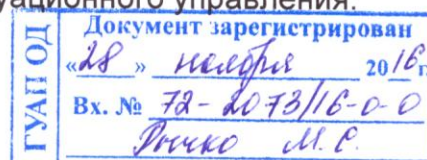 уационного управления.
ГУАП ОД
Документ зарегистрирован
«28» ноября 2016 г.
Вх. № 72-2073/16-0-0
М. С.